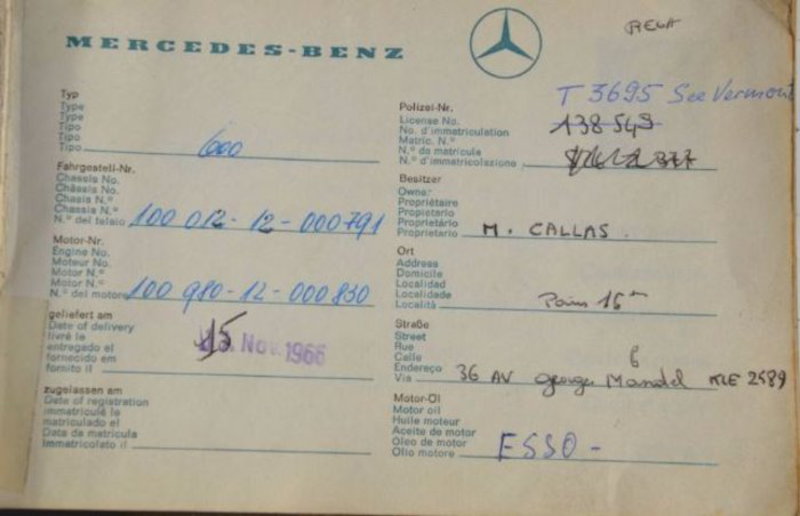 MERCEDES-BENZ
Typ
Type
Type
Tipo
Tipo
Tipo 600
Fahrgestell-Nr.
Chassis No.
Châssis No.
Chasis N.º
Chassis N.º
N.º del telaio 100 012-12-000791
Motor-Nr.
Engine No.
Moteur No.
Motor N.º
Motor N.º
N.º del motore 100 980-12-000830
geliefert am
Date of delivery
livré le
entregado el
fornecido em
fornito il 15 Nov. 1966
zugelassen am
Date of registration
immatriculé le
matriculado el
Data da matrícula
immatricolato il
T 3695 See Vermont
Polizei-Nr.
License No. 138549
No. d'immatriculation
Matric. N.º
N.º da matrícula
N.º d'immatricolazione
Besitzer
Owner
Propriétaire
Propietario
Proprietário
Proprietario M. CALLAS.
Ort
Address
Domicile
Localidad
Localidade
Località Paris 16
Straße
Street
Rue
Calle
Endereço
Via 36 AV georges Mandel KLE 2589
Motor-Öl
Motor oil
Huile moteur
Aceite de motor
Óleo de motor
Olio motore ESSO -